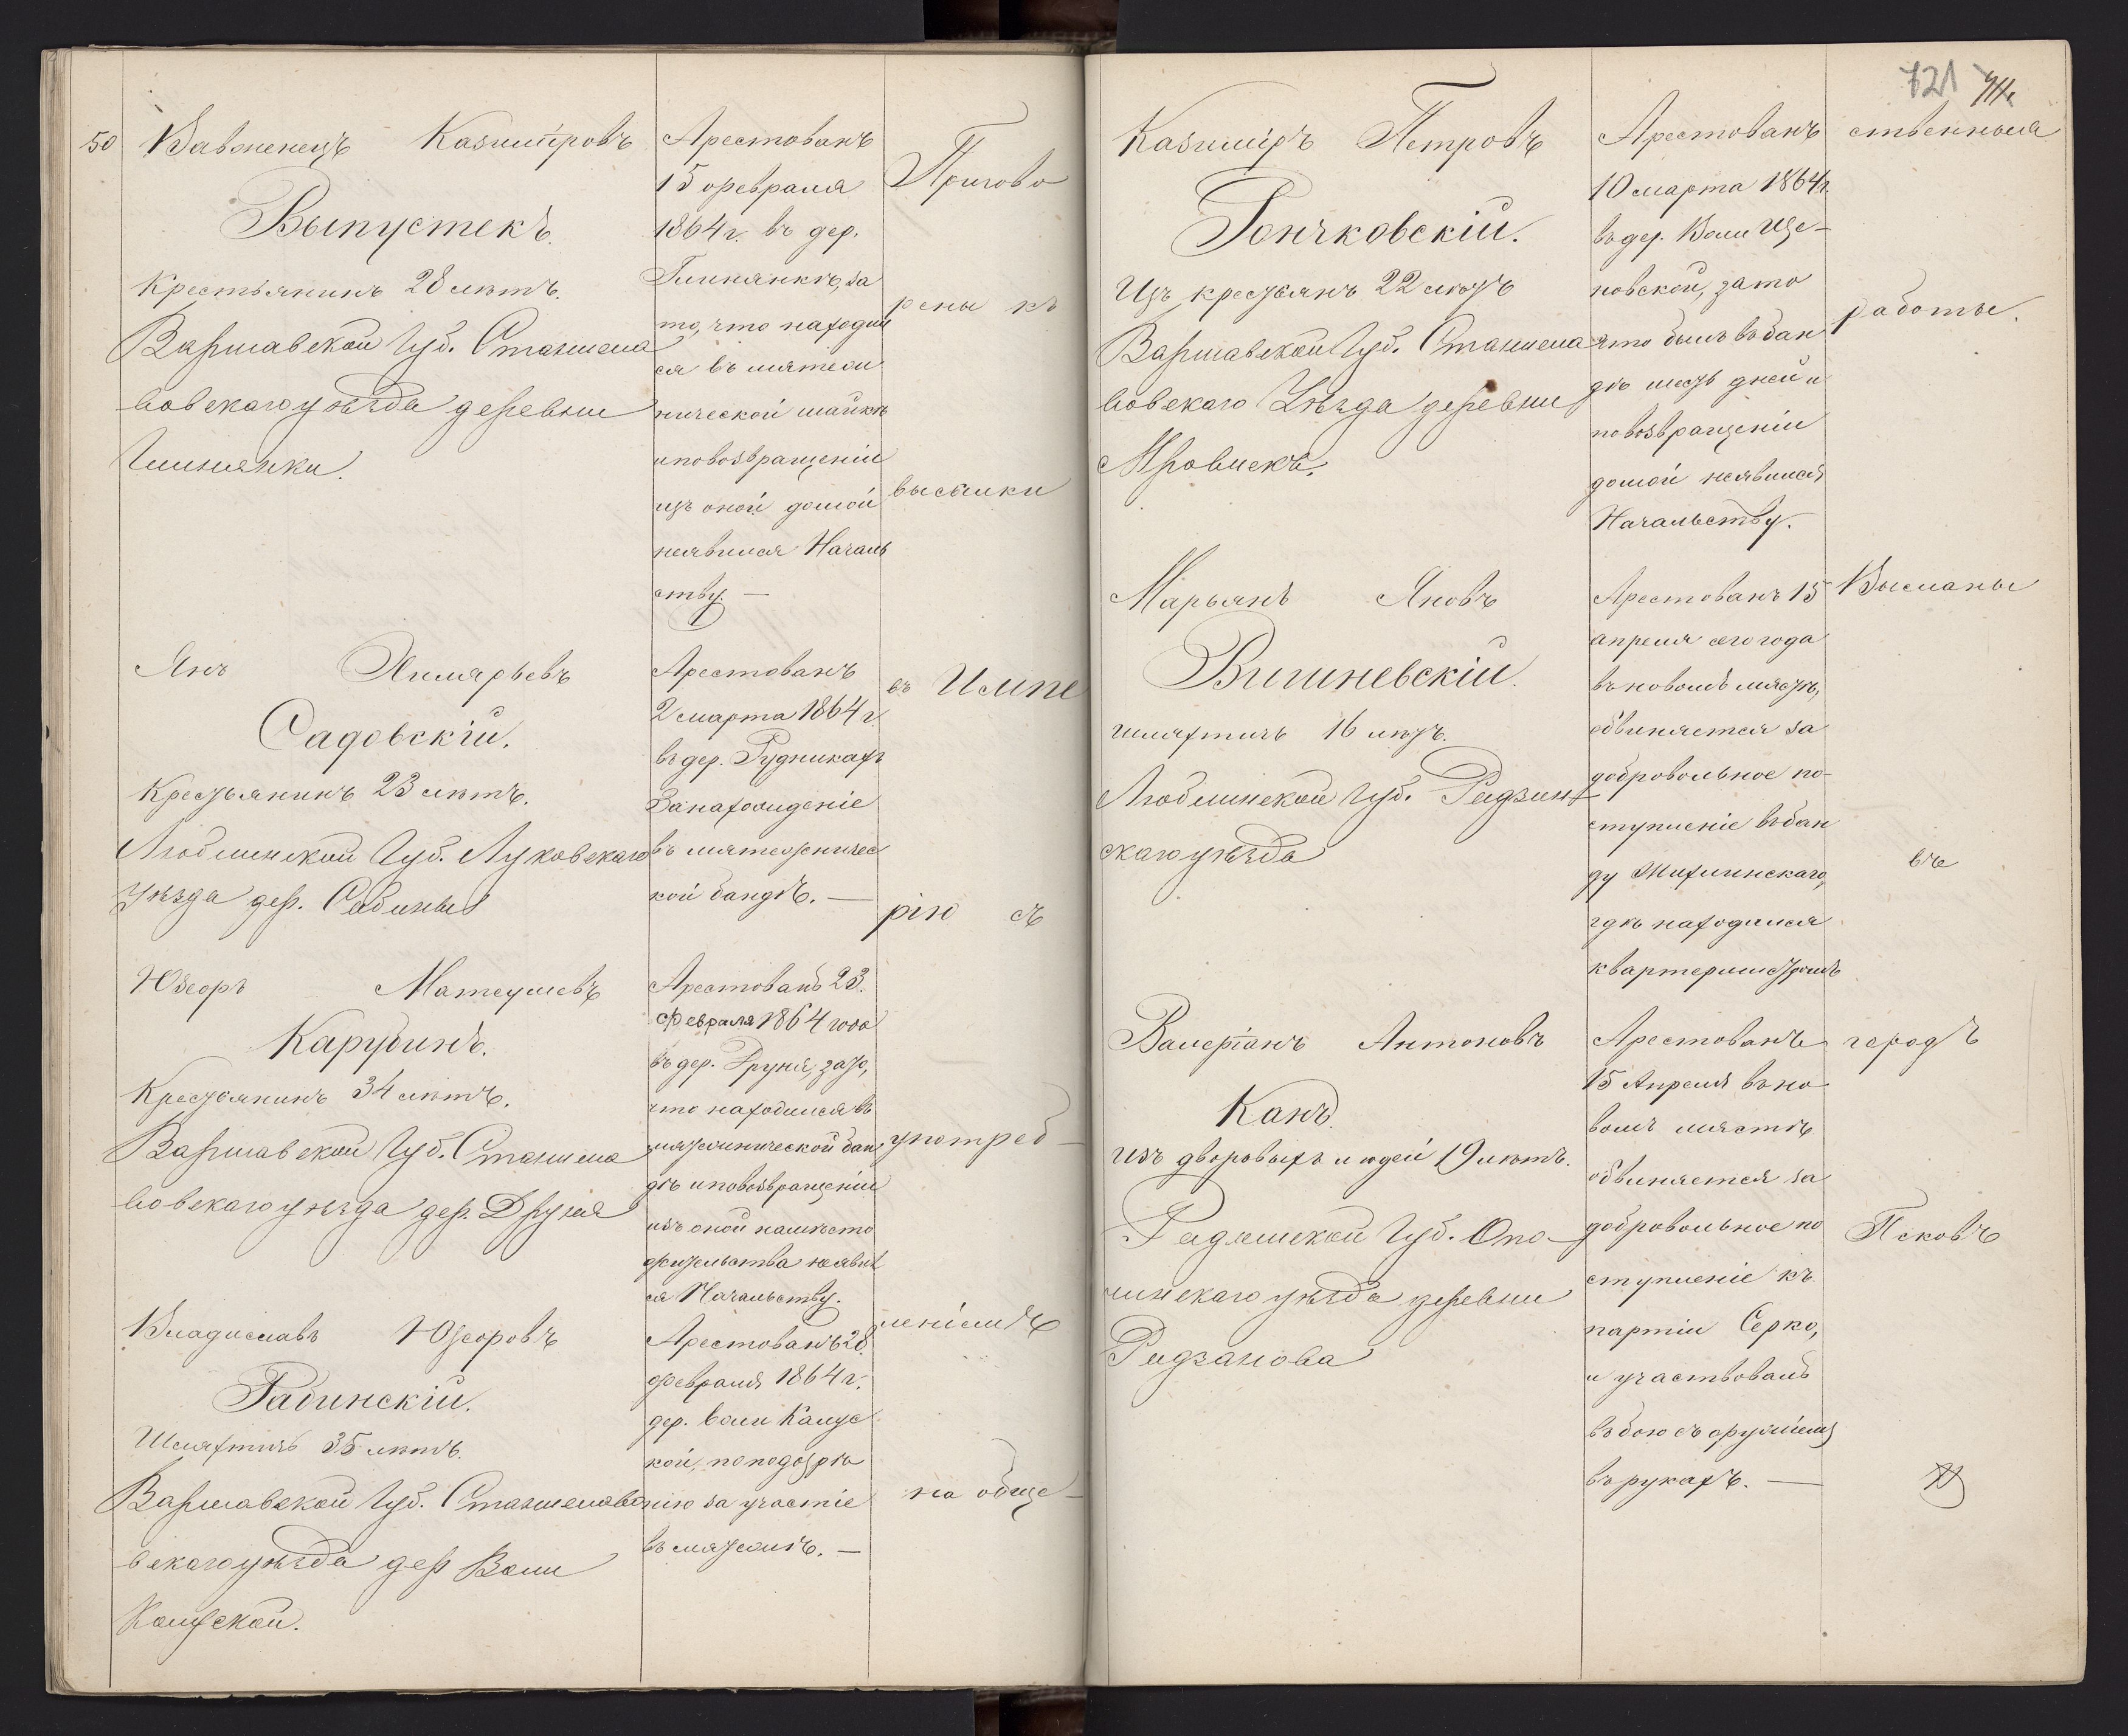 50
Вавженецъ Казимiровъ
Выпустекъ.
Крестьянинъ 28 лѣтъ.
Варшавской Губ. Станисла
вовскаго уѣзда деревни
Глинянки.
Арестованъ
15 февраля
1864 г. въ дер.
Глинянкѣ, за
то, что находил
ся въ мятеж
нической шайкѣ
и по возвращенiи
изъ оной домой
неявился Началь
ству. —
Пригово
рены къ
высылки
Янъ
Садовскiй.
Крестьянинъ 23 лѣтъ.
Люблинской Губ. Луковскаго
Уѣзда дер. Сабины
Арестованъ
2 марта 1864 г.
въ дер. Рудникахъ
За нахожденiе
въ мятежничес
кой бандѣ. —
въ Импе
рiю съ
Юзефъ Матеушевъ
Карубинъ.
Крестьянинъ 34 лѣтъ.
Варшавской Губ. Станисла
вовскаго уѣзда дер. Друня
Арестованъ 23.
Февраля 1864 года
въ дер. Друня, зато,
что находился въ
мятежнической бан
дѣ и по возвращенiи
изъ оной на мѣсто
жительства неявил
ся Начальству.
употреб-
ленiемъ
Владиславъ Юзефовъ
Рабинскiй.
Шляхтичъ 35 лѣтъ.
Варшавской Губ. Станиславо
вскаго уѣзда дер Воли
Арестованъ 28.
февраля 1864 г.
дер. Воли
кой, по подозрѣ
нiю за участiе
въ мятежѣ. —
на обще-
721
Казимiръ Петровъ
Гончковскiй.
Изъ крестьянъ 22 лѣтъ
Варшавской Губ. Станисла
вовскаго Уѣзда деревни
Мровискъ.
Арестованъ
10 марта 1864 г.
въ дер. Воли Це-
новской, за то
что былъ въ бан
дѣ шесть дней и
по возвращенiи
домой неявился
Начальству.
ственныя
работы.
Марьянъ Яновъ
Вишневскiй.
шляхтичъ 16 лѣтъ.
Люблинской Губ. Радзин
скаго уѣзда
Арестованъ 15
апреля сего года
въ новомъ мястѣ,
обвиняется за
добровольное по-
ступленiе въ бан
ду Жихлинскаго,
гдѣ находился
квартермистромъ
Высланы
въ
Валерiанъ Антоновъ
Канъ.
изъ дворовыхъ людей 19 лѣтъ.
Радомской Губ. Опо-
чинскаго уѣзда деревни
Радзанова
Арестованъ
15 Апреля въ но
вомъ мястѣ
обвиняется за
добровольное по
ступленiе къ
партiи Серко,
и участвовалъ
въ бою съ оружiемъ
въ рукахъ. —
городъ
Псковъ